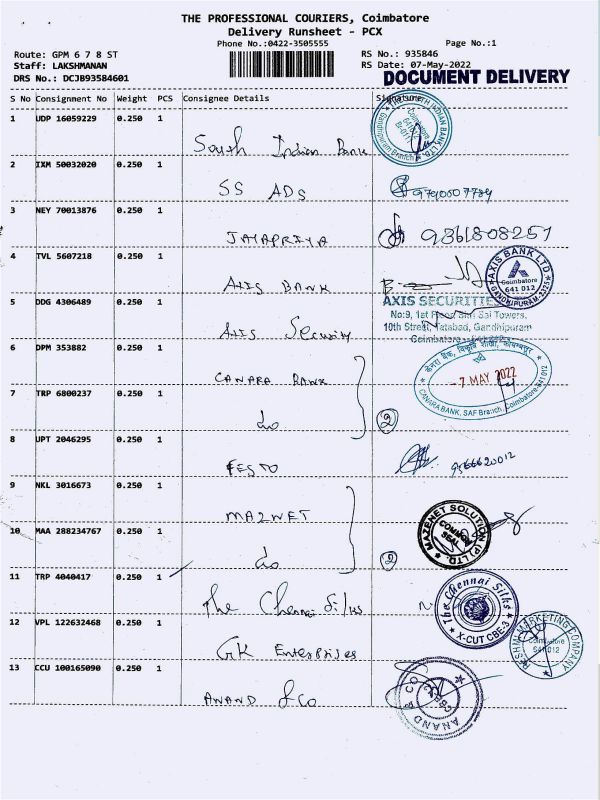 THE PROFESSIONAL COURIERS, Coimbatore
Delivery Runsheet - PCX
Phone No.:0422-3505555
Page No.:1
Route: GPM 6 7 8 ST
RS No.: 935846
Staff: LAKSHMANAN
RS Date: 07-May-2022
DRS No.: DCJB93584601
DOCUMENT DELIVERY
S No Consignment No Weight PCS Consignee Details Signature
1 UDP 16059229 0.250 1
South Indian Bank
THE SOUTH INDIAN BANK LTD.
Coimbatore
Gandhipuram Branch
2 IXM 50032020 0.250 1
SS ADS
3 NEY 70013876 0.250 1
JAYAPRIYA 9361808257
4 TVL 5607218 0.250 1
AXIS BANK
AXIS BANK LTD
Coimbatore
641 012
GANDHIPURAM
5 DDG 4306489 0.250 1
AXIS SECURITIES
No:9, 1st Floor, Shri Sai Towers,
10th Street, Tatabad, Gandhipuram
Coimbatore
Axis Security
6 DPM 353882 0.250 1
CANARA BANK
- 7 MAY 2022
CANARA BANK, SAF Branch, Coimbatore-641 012
7 TRP 6800237 0.250 1
Do 2
8 UPT 2046295 0.250 1
FESTO
9 NKL 3016673 0.250 1
MAZNET
MAZENET SOLUTION (P) LTD.
COMMON
SEAL
10 MAA 288234767 0.250 1
Do 2
11 TRP 4040417 0.250 1
The Chennai Silks
The Chennai Silks
X-CUT CBE-3
12 VPL 122632468 0.250 1
GK Enterprises
MARKETING COMPANY
Coimbatore
641 012
13 CCU 100165090 0.250 1
ANAND & Co
ANAND & CO